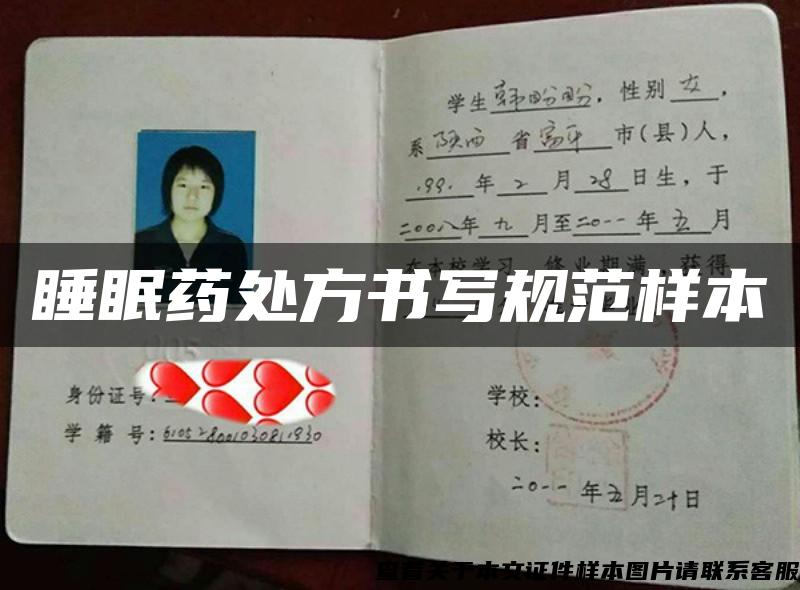 学生韩盼盼，性别女，
系陕西省富平市(县)人，
1991年2月28日生，于
二00八年九月至二0一一年五月
在本校学习 修业期满，获得
睡眠药处方书写规范样本
身份证号：
学 籍 号：
学校：
校长：
二0一一年五月二十日
查看关于本文证件样本图片请联系客服